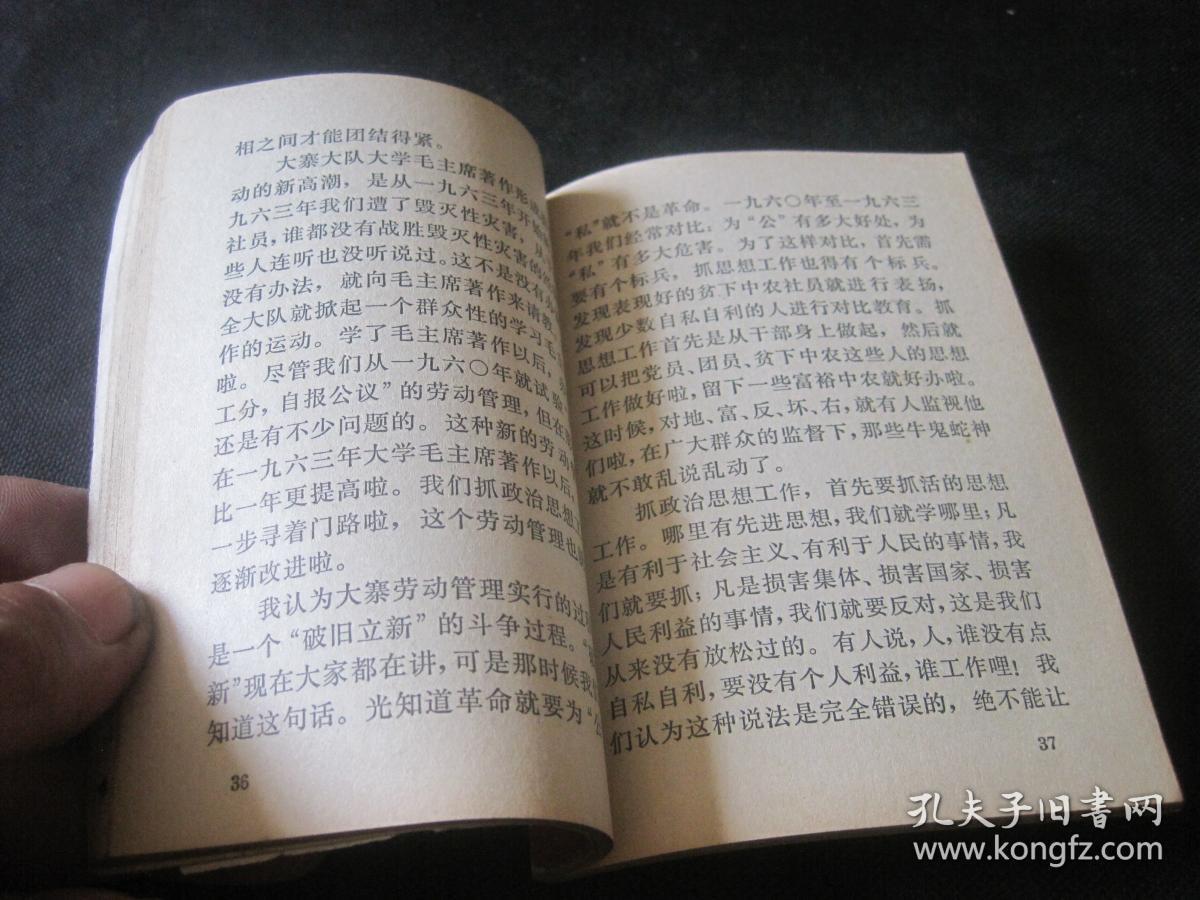 相之间才能团结得紧。
大寨大队大学毛主席著作形成
动的新高潮，是从一九六三年开始
九六三年我们遭了毁灭性灾害，从
社员，谁都没有战胜毁灭性灾害的
些人连听也没听说过。这不是没有办
没有办法，就向毛主席著作来请教
全大队就掀起一个群众性的学习毛
作的运动。学了毛主席著作以后，
啦。尽管我们从一九六〇年就试验
工分，自报公议”的劳动管理，但在
还是有不少问题的。这种新的劳动
在一九六三年大学毛主席著作以后，
比一年更提高啦。我们抓政治思想
一步寻着门路啦，这个劳动管理也
逐渐改进啦。
我认为大寨劳动管理实行的过
是一个“破旧立新”的斗争过程。“
新”现在大家都在讲，可是那时候我
知道这句话。光知道革命就要为“公
36
“私”就不是革命。一九六〇年至一九六三
年我们经常对比：为“公”有多大好处，为
“私”有多大危害。为了这样对比，首先需
要有个标兵，抓思想工作也得有个标兵。
发现表现好的贫下中农社员就进行表扬，
发现少数自私自利的人进行对比教育。抓
思想工作首先是从干部身上做起，然后就
可以把党员、团员、贫下中农这些人的思想
工作做好啦，留下一些富裕中农就好办啦。
这时候，对地、富、反、坏、右，就有人监视他
们啦，在广大群众的监督下，那些牛鬼蛇神
就不敢乱说乱动了。
抓政治思想工作，首先要抓活的思想
工作。哪里有先进思想，我们就学哪里；凡
是有利于社会主义、有利于人民的事情，我
们就要抓；凡是损害集体、损害国家、损害
人民利益的事情，我们就要反对，这是我们
从来没有放松过的。有人说，人，谁没有点
自私自利，要没有个人利益，谁工作哩！我
们认为这种说法是完全错误的，绝不能让
37
孔夫子旧書网
www.kongfz.com